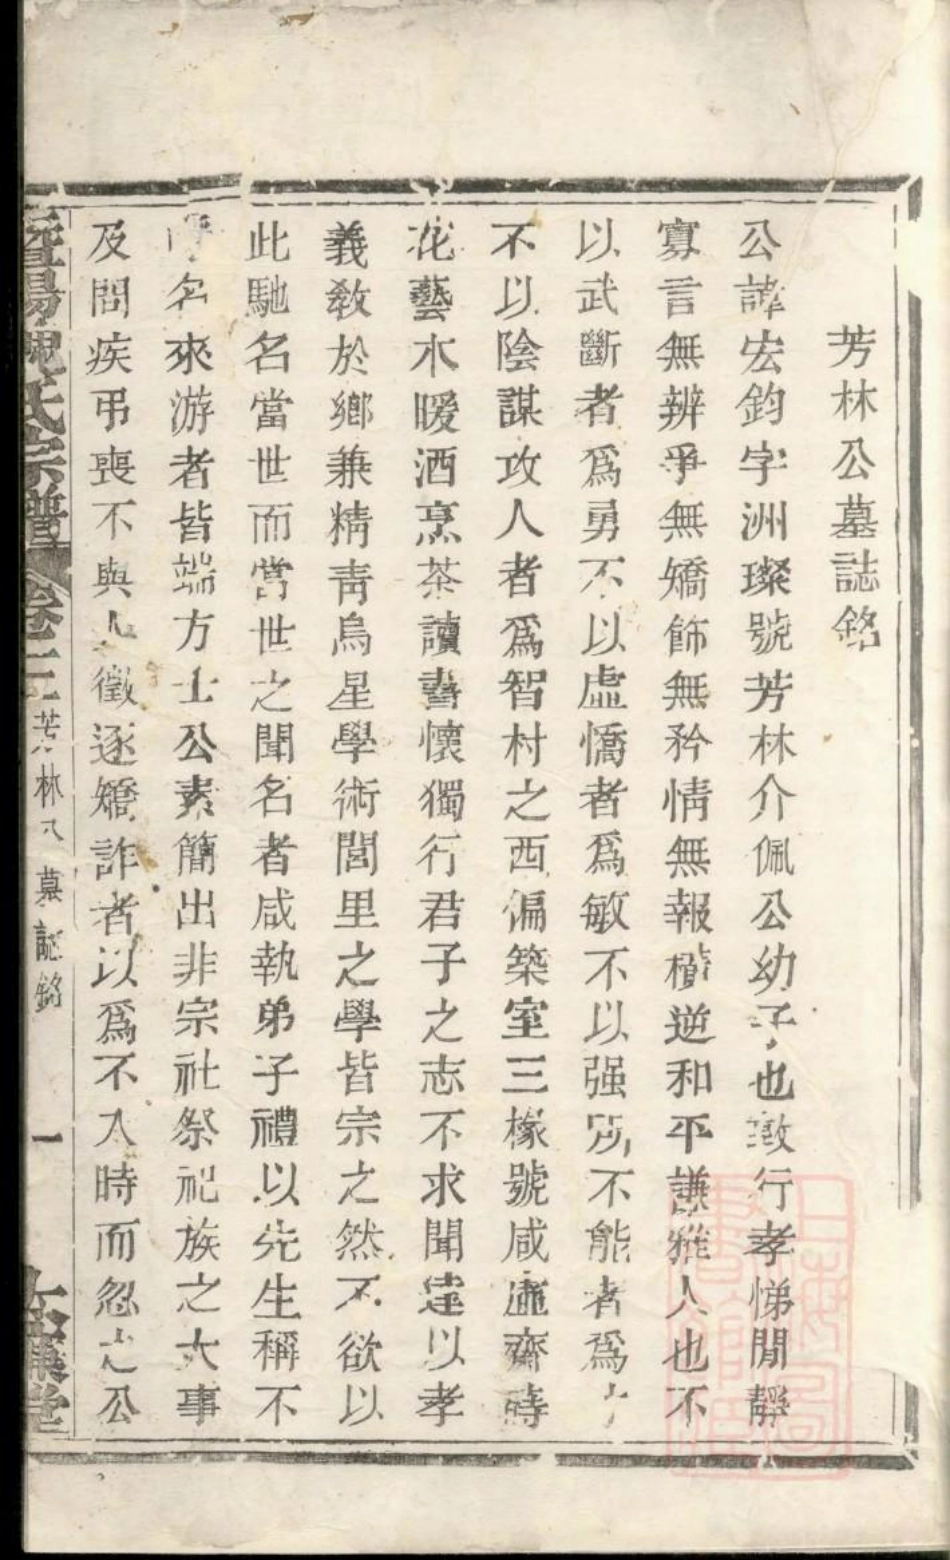 芳林公墓誌銘
公諱宏鈞字洲璨號芳林介佩公幼子也敦行孝悌閒靜
寡言無辨爭無嬌飾無矜情無報橫逆和平謙雅人也不
以武斷者爲勇不以虛憍者爲敏不以强所不能者爲
不以陰謀攻人者爲智村之西偏築室三椽號咸齋蒔
花藝木暖酒烹茶讀書懷獨行君子之志不求聞達以孝
義敎於鄕兼精靑烏星學術閭里之學皆宗之然不欲以
此馳名當世而當世之聞名者咸執弟子禮以先生稱不
名來游者皆端方士公素簡出非宗社祭祀族之大事
及問疾弔喪不與人徵逐嬌詐者以爲不入時而忽之公
暨陽氏宗譜 卷二 芳林公墓誌銘 一 堂